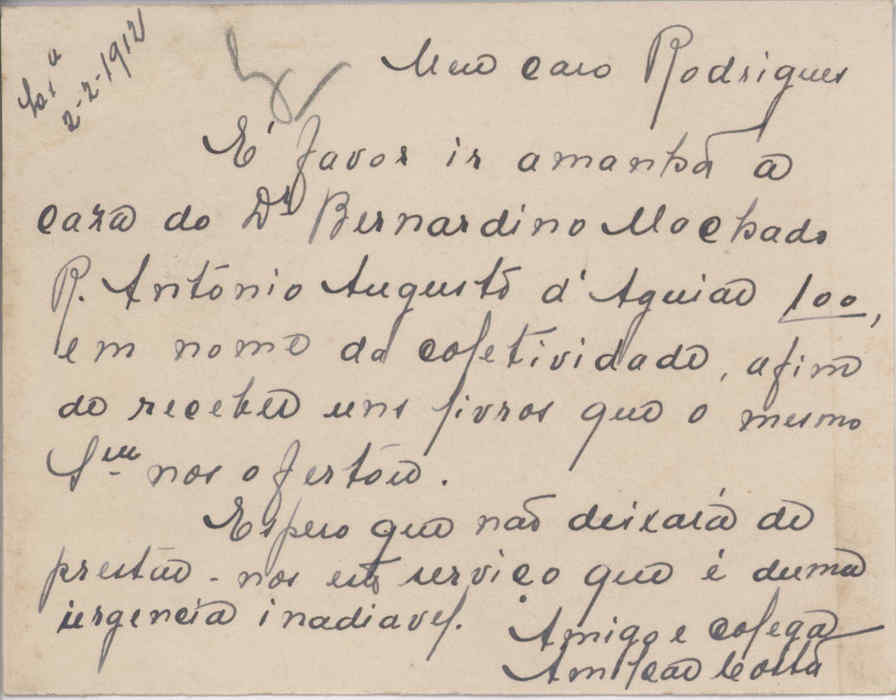 Lxª
2-2-1912
Meu caro Rodrigues
E' favor ir amanhã a
casa do Dr Bernardino Machado
R. António Augusto d'Aguiar 100,
em nome da coletividade, afim
de receber uns livros que o mesmo
Snr nos ofertou.
Espero que não deixará de
prestar-nos este serviço que é duma
urgencia inadiavel.
Amigo e colega
Amilcar Costa